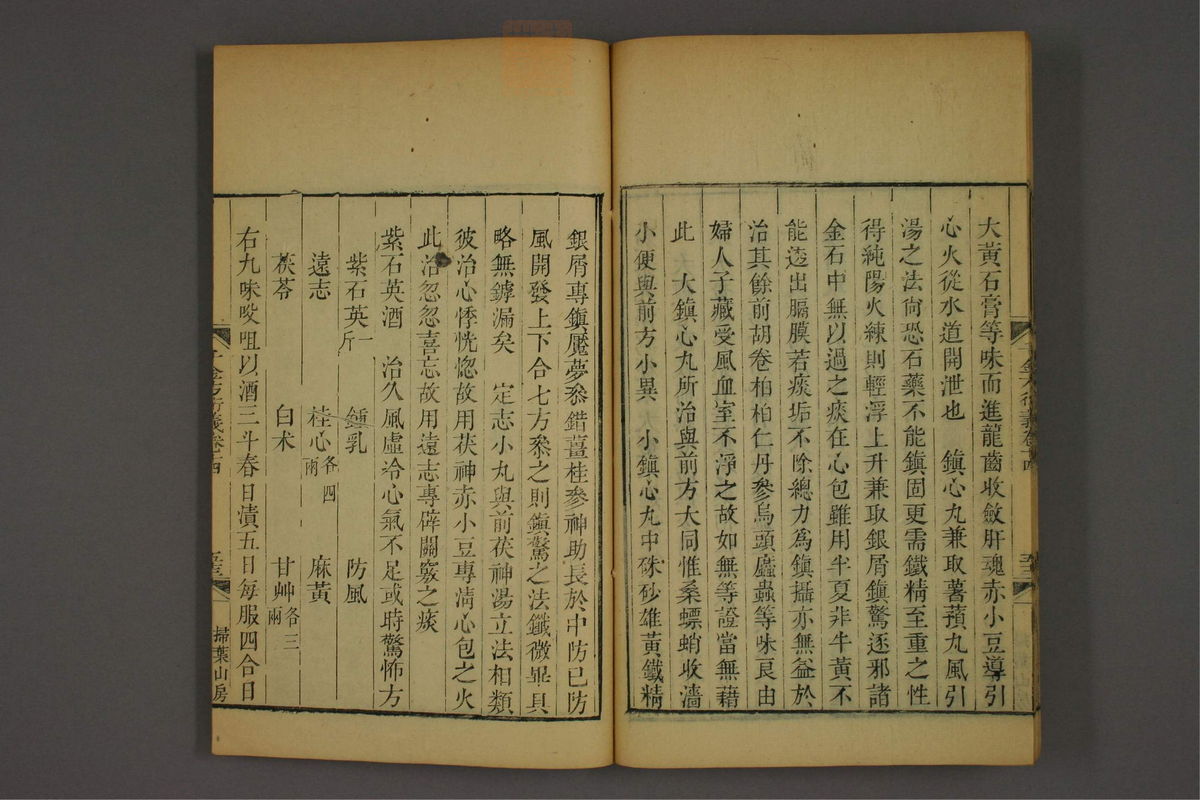 大黃石膏等味而進龍齒收斂肝魂赤小豆導引
心火從水道開泄也　鎭心丸兼取薯蕷丸風引
湯之法尙恐石藥不能鎭固更需鐵精至重之性
得純陽火練則輕浮上升兼取銀屑鎭驚逐邪諸
金石中無以過之痰在心包雖用半夏非牛黃不
能透出膈膜若痰垢不除總力爲鎭攝亦無益於
治其餘前胡卷柏柏仁丹參烏頭䗪蟲等味良由
婦人子藏受風血室不淨之故如無等證當無藉
此　大鎭心丸所治與前方大同惟桑螵蛸收濇
小便與前方小異　小鎭心丸中硃砂雄黃鐵精
千金方衍義卷十四
銀屑專鎭魘夢叅錯薑桂參神助長於中防已防
風開發上下合七方叅之則鎭驚之法鐵微畢具
略無罅漏矣　定志小丸與前茯神湯立法相類
彼治心悸恍惚故用茯神赤小豆專淸心包之火
此治忽忽喜忘故用遠志專辟闢竅之痰
紫石英酒　治久風虛冷心氣不足或時驚怖方
紫石英一斤　鍾乳　防風
遠志　桂心各四兩　麻黃
茯苓　白术　甘艸各三兩
右九味㕮咀以酒三斗春日漬五日每服四合日
千金方衍義卷十四
掃葉山房